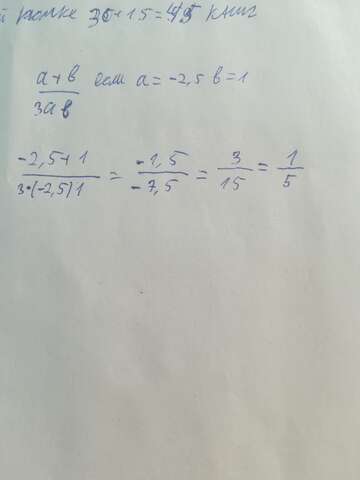 й полке 30+15=45 книг
a+b
3ab
если a=-2,5 b=1
-2,5+1
3·(-2,5)1
=
-1,5
-7,5
=
3
15
=
1
5